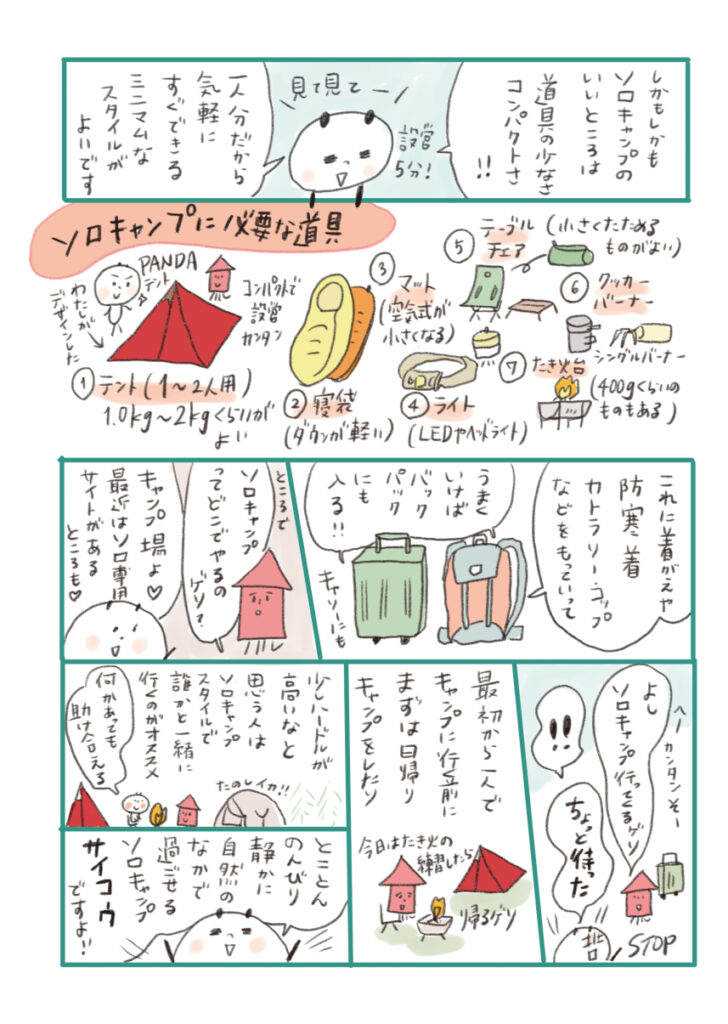 しかもしかも
ソロキャンプの
いいところは
道具の少なさ
コンパクトさ
!!
見て見てー
設営
5分!
一人分だから
気軽に
すぐできる
ミニマムな
スタイルが
よいです
ソロキャンプに必要な道具
PANDA
テント
わたしが
デザインした
コンパクトで
設営
カンタン
① テント(1〜2人用)
1.0kg〜2kgくらいが
よい
② 寝袋
(ダウンが軽い)
③ マット
(空気式が
小さくなる)
④ ライト
(LEDやヘッドライト)
⑤ テーブル
チェア
(小さくたためる
ものがよい)
⑥ クッカー
バーナー
シングルバーナー
⑦ たき火台
(400gくらいの
ものもある)
これに着がえや
防寒着
カトラリー・コップ
などをもっていって
うまく
いけば
バック
パック
にも
入る!!
キャリーにも
ところで
ソロキャンプ
ってどこでやるの
ゲソ?
キャンプ場よ♡
最近はソロ専用
サイトがある
ところも♡
へー カンタンそー
よし
ソロキャンプ行ってくるゲソ
!!
ちょっと待った
STOP
最初から一人で
キャンプに行く前に
まずは日帰り
キャンプをしたり
今日はたき火の
練習したら
帰るゲソ
少しハードルが
高いなと
思う人は
ソロキャンプ
スタイルで
誰かと一緒に
行くのがオススメ
何かあっても
助け合える
たのしイカ!!
とことん
のんびり
静かに
自然の
なかで
過ごせる
ソロキャンプ
サイコウ
ですよ!!